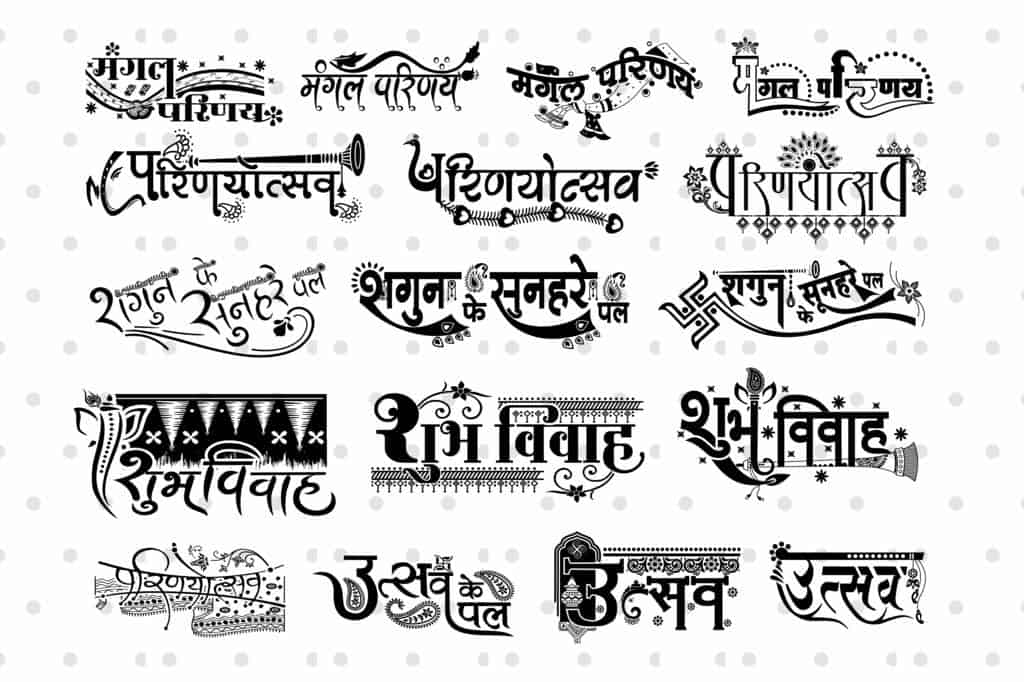 मंगल परिणय
मंगल परिणय
मंगल परिणय
मंगल परिणय
परिणयोत्सव
परिणयोत्सव
परिणयोत्सव
शगुन के सुनहरे पल
शगुन के सुनहरे पल
शगुन के सुनहरे पल
शुभ विवाह
शुभ विवाह
शुभ विवाह
परिणयोत्सव
उत्सव के पल
उत्सव
उत्सव